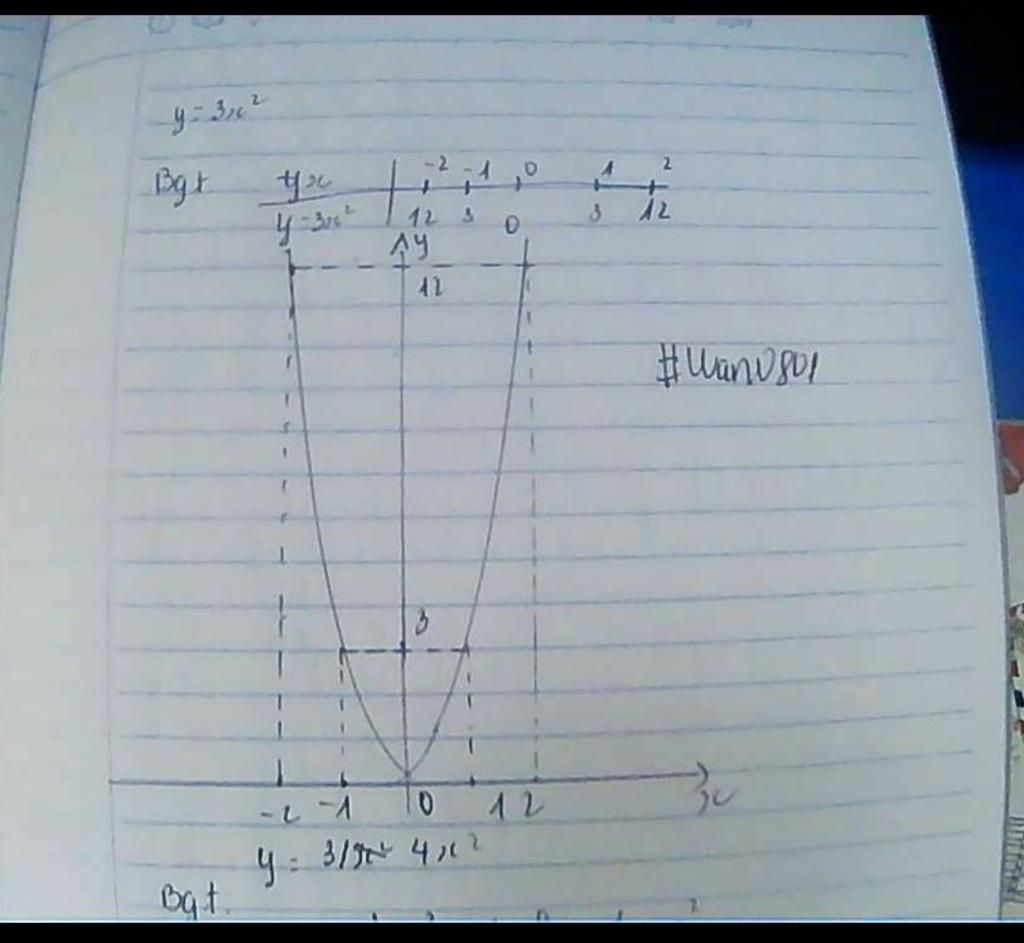 y = 3x²
Bgt yx -2 -1 0 1 2
y = 3x² 12 3 0 3 12
y
12
#Wan0801
3
-2 -1 0 1 2 x
y = 4x²
Bgt.